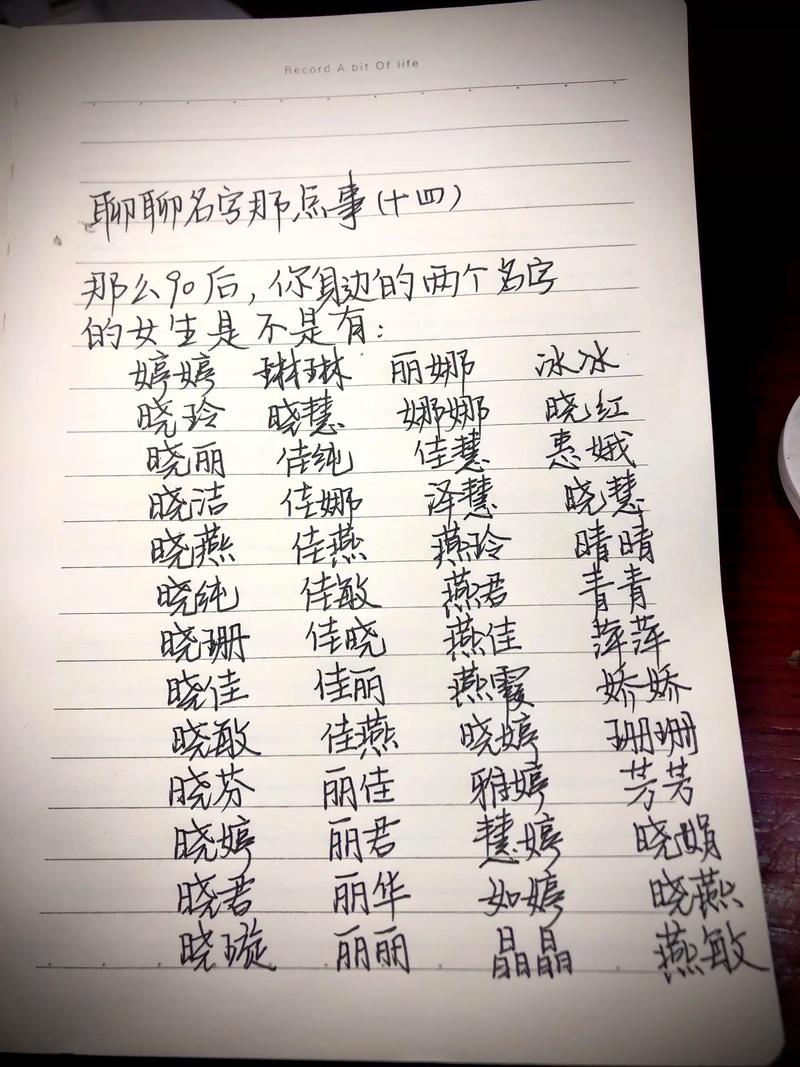 Record A bit Of life
聊聊名字那点事(十四)
那么90后,你身边的两个名字
的女生是不是有:
婷婷 琳琳 丽娜 冰冰
晓玲 晓慧 娜娜 晓红
晓丽 佳纯 佳慧 惠娥
晓洁 佳娜 泽慧 晓慧
晓燕 佳燕 燕玲 晴晴
晓纯 佳敏 燕君 青青
晓珊 佳晓 燕佳 萍萍
晓佳 佳丽 燕霞 娇娇
晓敏 佳燕 晓婷 珊珊
晓芬 丽佳 雅婷 芳芳
晓婷 丽君 慧婷 晓娟
晓君 丽华 如婷 晓燕
晓璇 丽丽 晶晶 燕敏